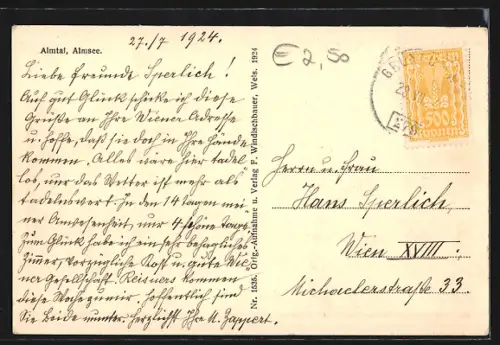 27./7 1924.
Almtal, Almsee.
Liebe Freunde Sperlich!
Auf gut Glück schicke ich diese
Grüße an Ihre Wiener Adresse
u. hoffe, daß sie doch in Ihre Hände
kommen. Alles wäre hier tadel
los, nur das Wetter ist mehr als
tadelnswert. In den 14 Tagen mei
ner Anwesenheit nur 4 schöne Tage.
Zum Glück habe ich ein sehr behagliches
Zimmer, vorzügliche Kost u. gute Wie
ner Gesellschaft. Reisners kommen
diese Woche zu mir. Hoffentlich sind
Sie beide munter. Herzlichst Ihre M. Zappert.
Nr. 1538. Orig.-Aufnahme u. Verlag F. Windischbauer, Wels. 1924
2,8
500
Kronen
Herrn u. Frau
Hans Sperlich
Wien XVIII.
Michaelerstraße 33